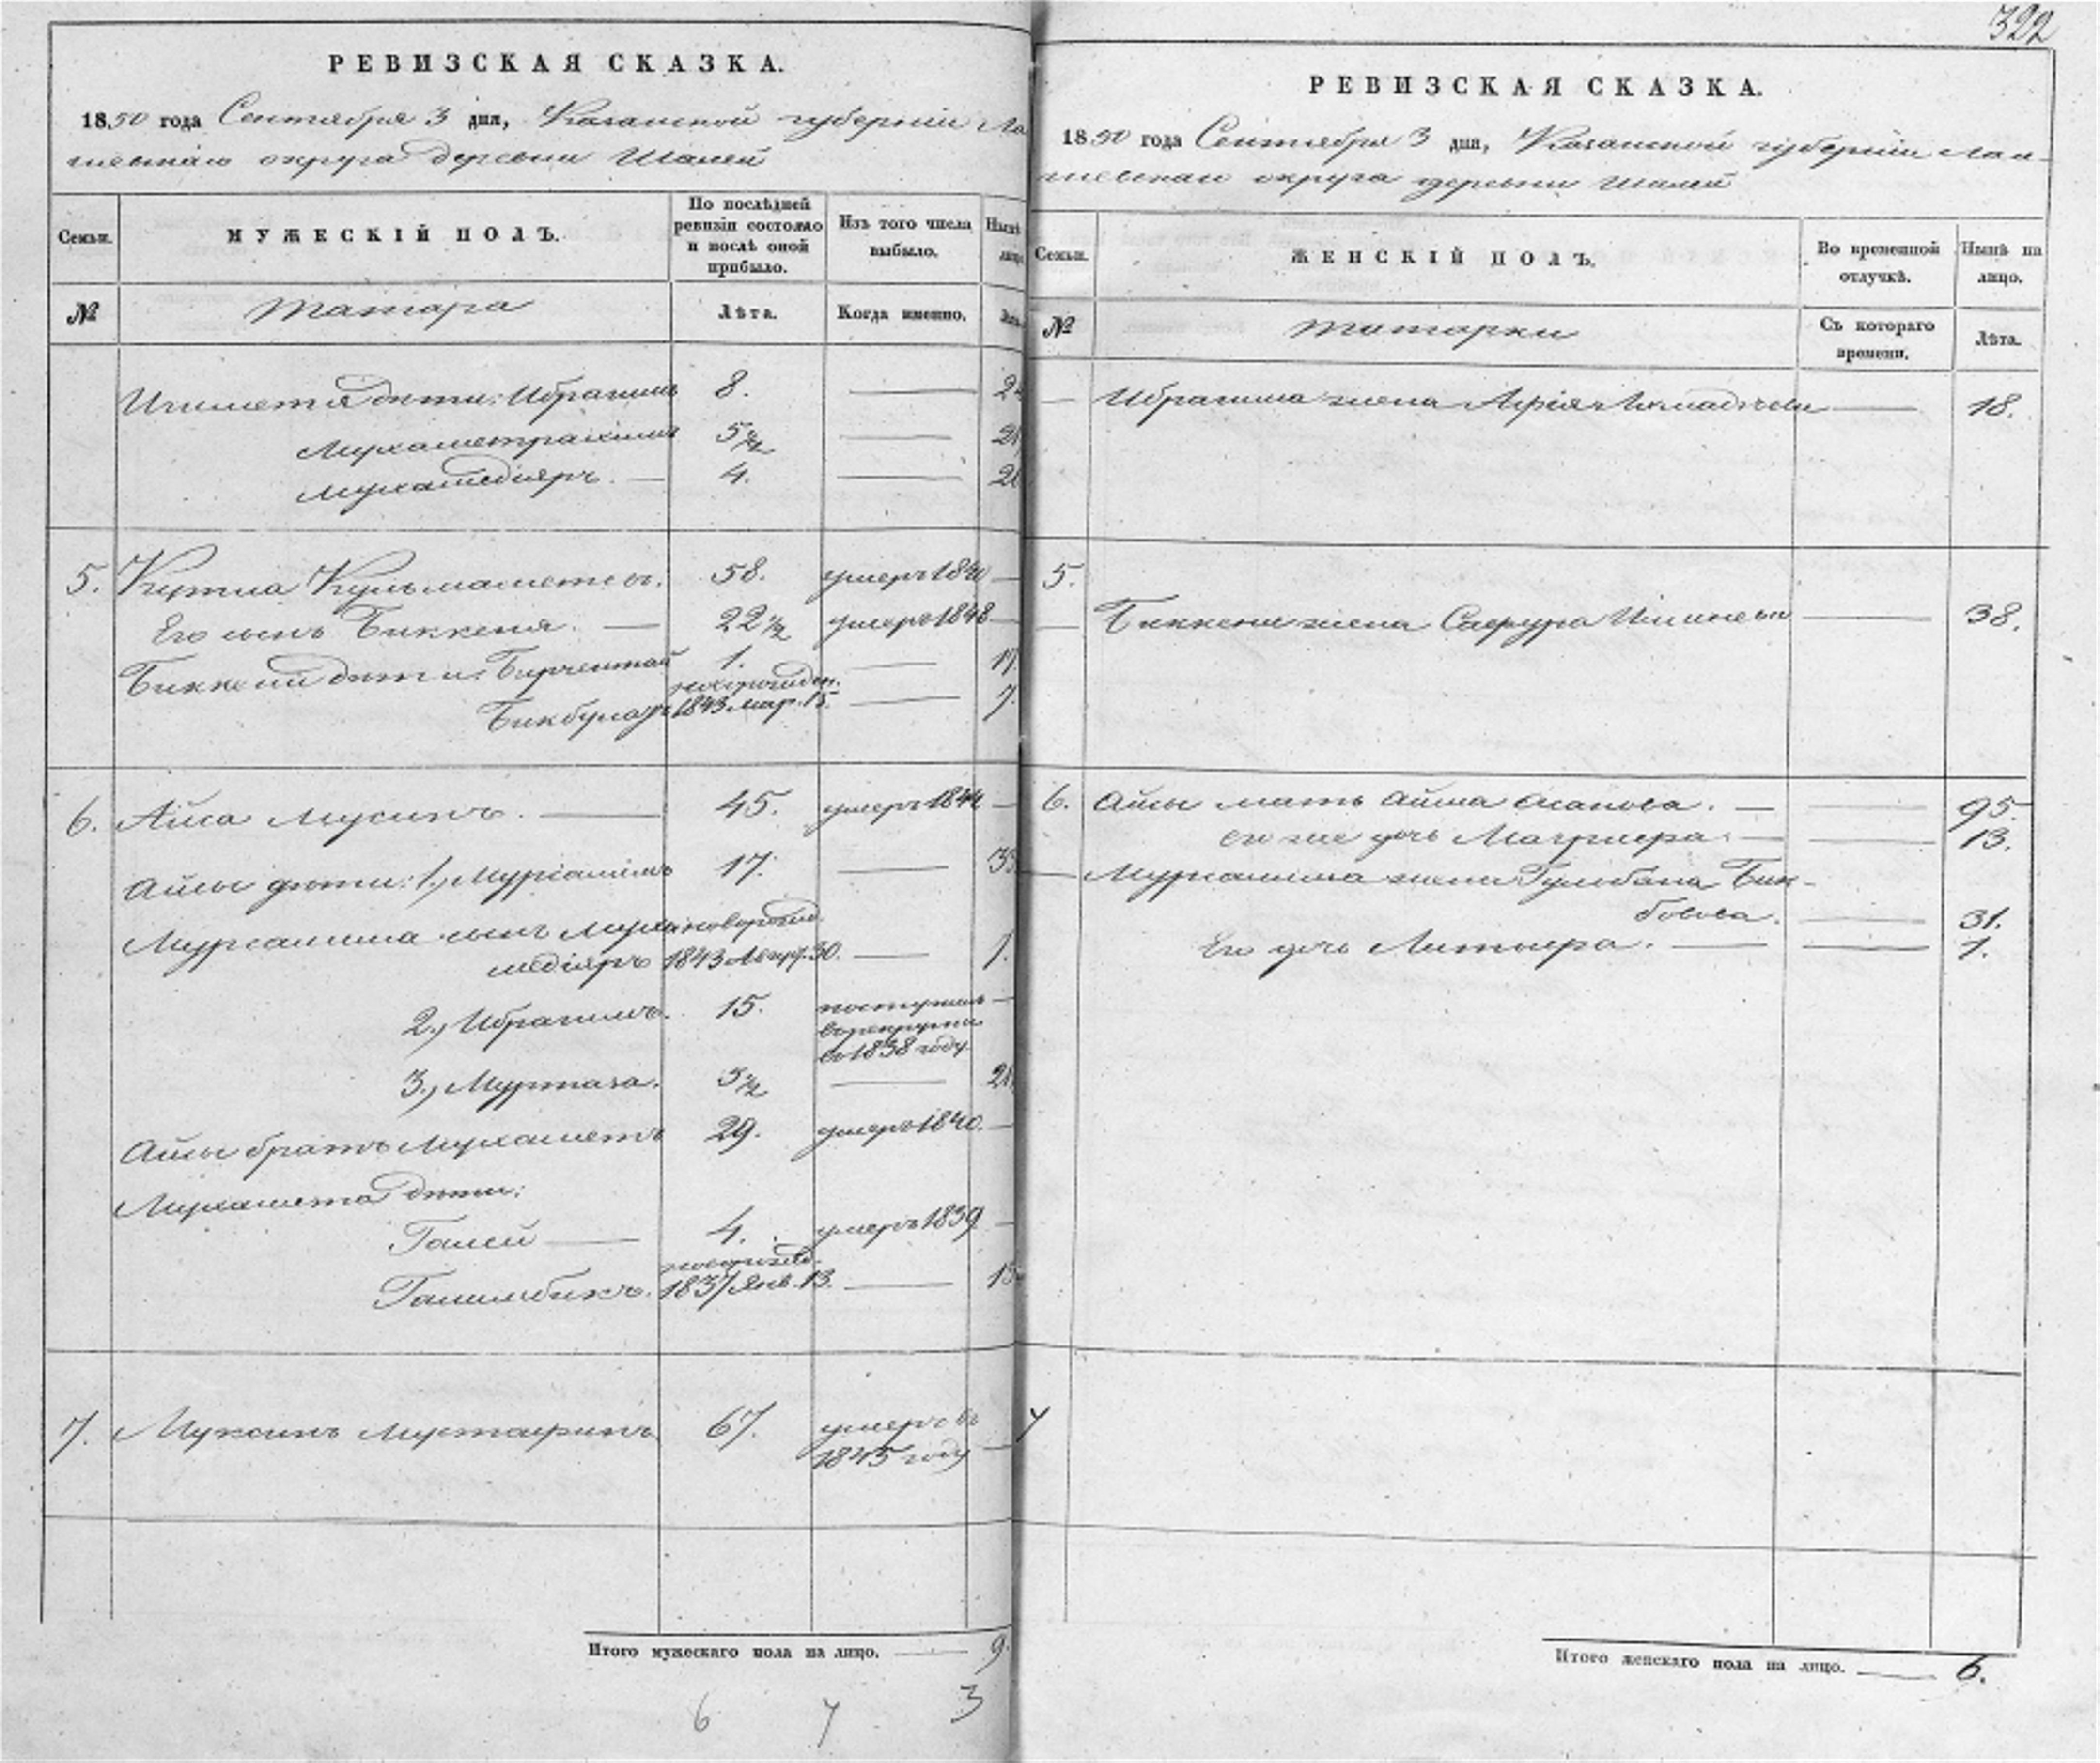 РЕВИЗСКАЯ СКАЗКА.
1850 года Сентября 3 дня, Казанской губерніи Ла
шевскаго округа деревни Шалей
Семьи.
МУЖЕСКІЙ ПОЛЪ.
По послѣдней ревизіи состояло и послѣ оной прибыло.
Изъ того числа выбыло.
Нынѣ
№
Татара
Лѣта.
Когда именно.
дѣти: Ибрагимъ 8. —
Мухаметрахимъ 5 1/2 —
Мухамедіяръ. — 4. —
5. Кутла Кульмаметевъ. 58. умеръ 184 —
Его сынъ Биккеня. — 22 1/2 умеръ 1848 —
Биккени дѣти: 1. — 17.
новорожден.
Бикбулатъ 1843 мар. 15. — 7.
6. Айса Мусинъ. — 45. умеръ 1844 —
Айсы дѣти: 1., Мургалимъ 17. — 33
Мургалима сынъ Муха новорожд.
медіяръ 1843 30. — 1.
2., Ибрагимъ. 15. поступилъ —
въ рекруты
въ 1838 году.
3., Муртаза. 5 1/2 —
Айсы братъ Мухаметъ 29. умеръ 1840. —
Мухамета дѣти:
Галей — 4. умеръ 1839 —
новорожд.
1837 Янв. 13. — 13
7. Муксинъ Мустафинъ 67. умеръ въ
1845 году —
Итого мужескаго пола на лицо. — 9.
6 7 3
322
РЕВИЗСКАЯ СКАЗКА.
1850 года Сентября 3 дня, Казанской губерніи Лаи-
шевскаго округа деревни Шалей
Семьи.
ЖЕНСКІЙ ПОЛЪ.
Во временной отлучкѣ.
Нынѣ на лицо.
№
Татарки
Съ котораго времени.
Лѣта.
— Ибрагима жена — 18.
5.
— Биккени жена — 38.
6. Айсы мать Айша — — 95.
его же дочь — — 13.
— Мургалима жена Гульбана Бик-
бова. — 31.
Его дочь — — 1.
7
Итого женскаго пола на лицо. — 6.